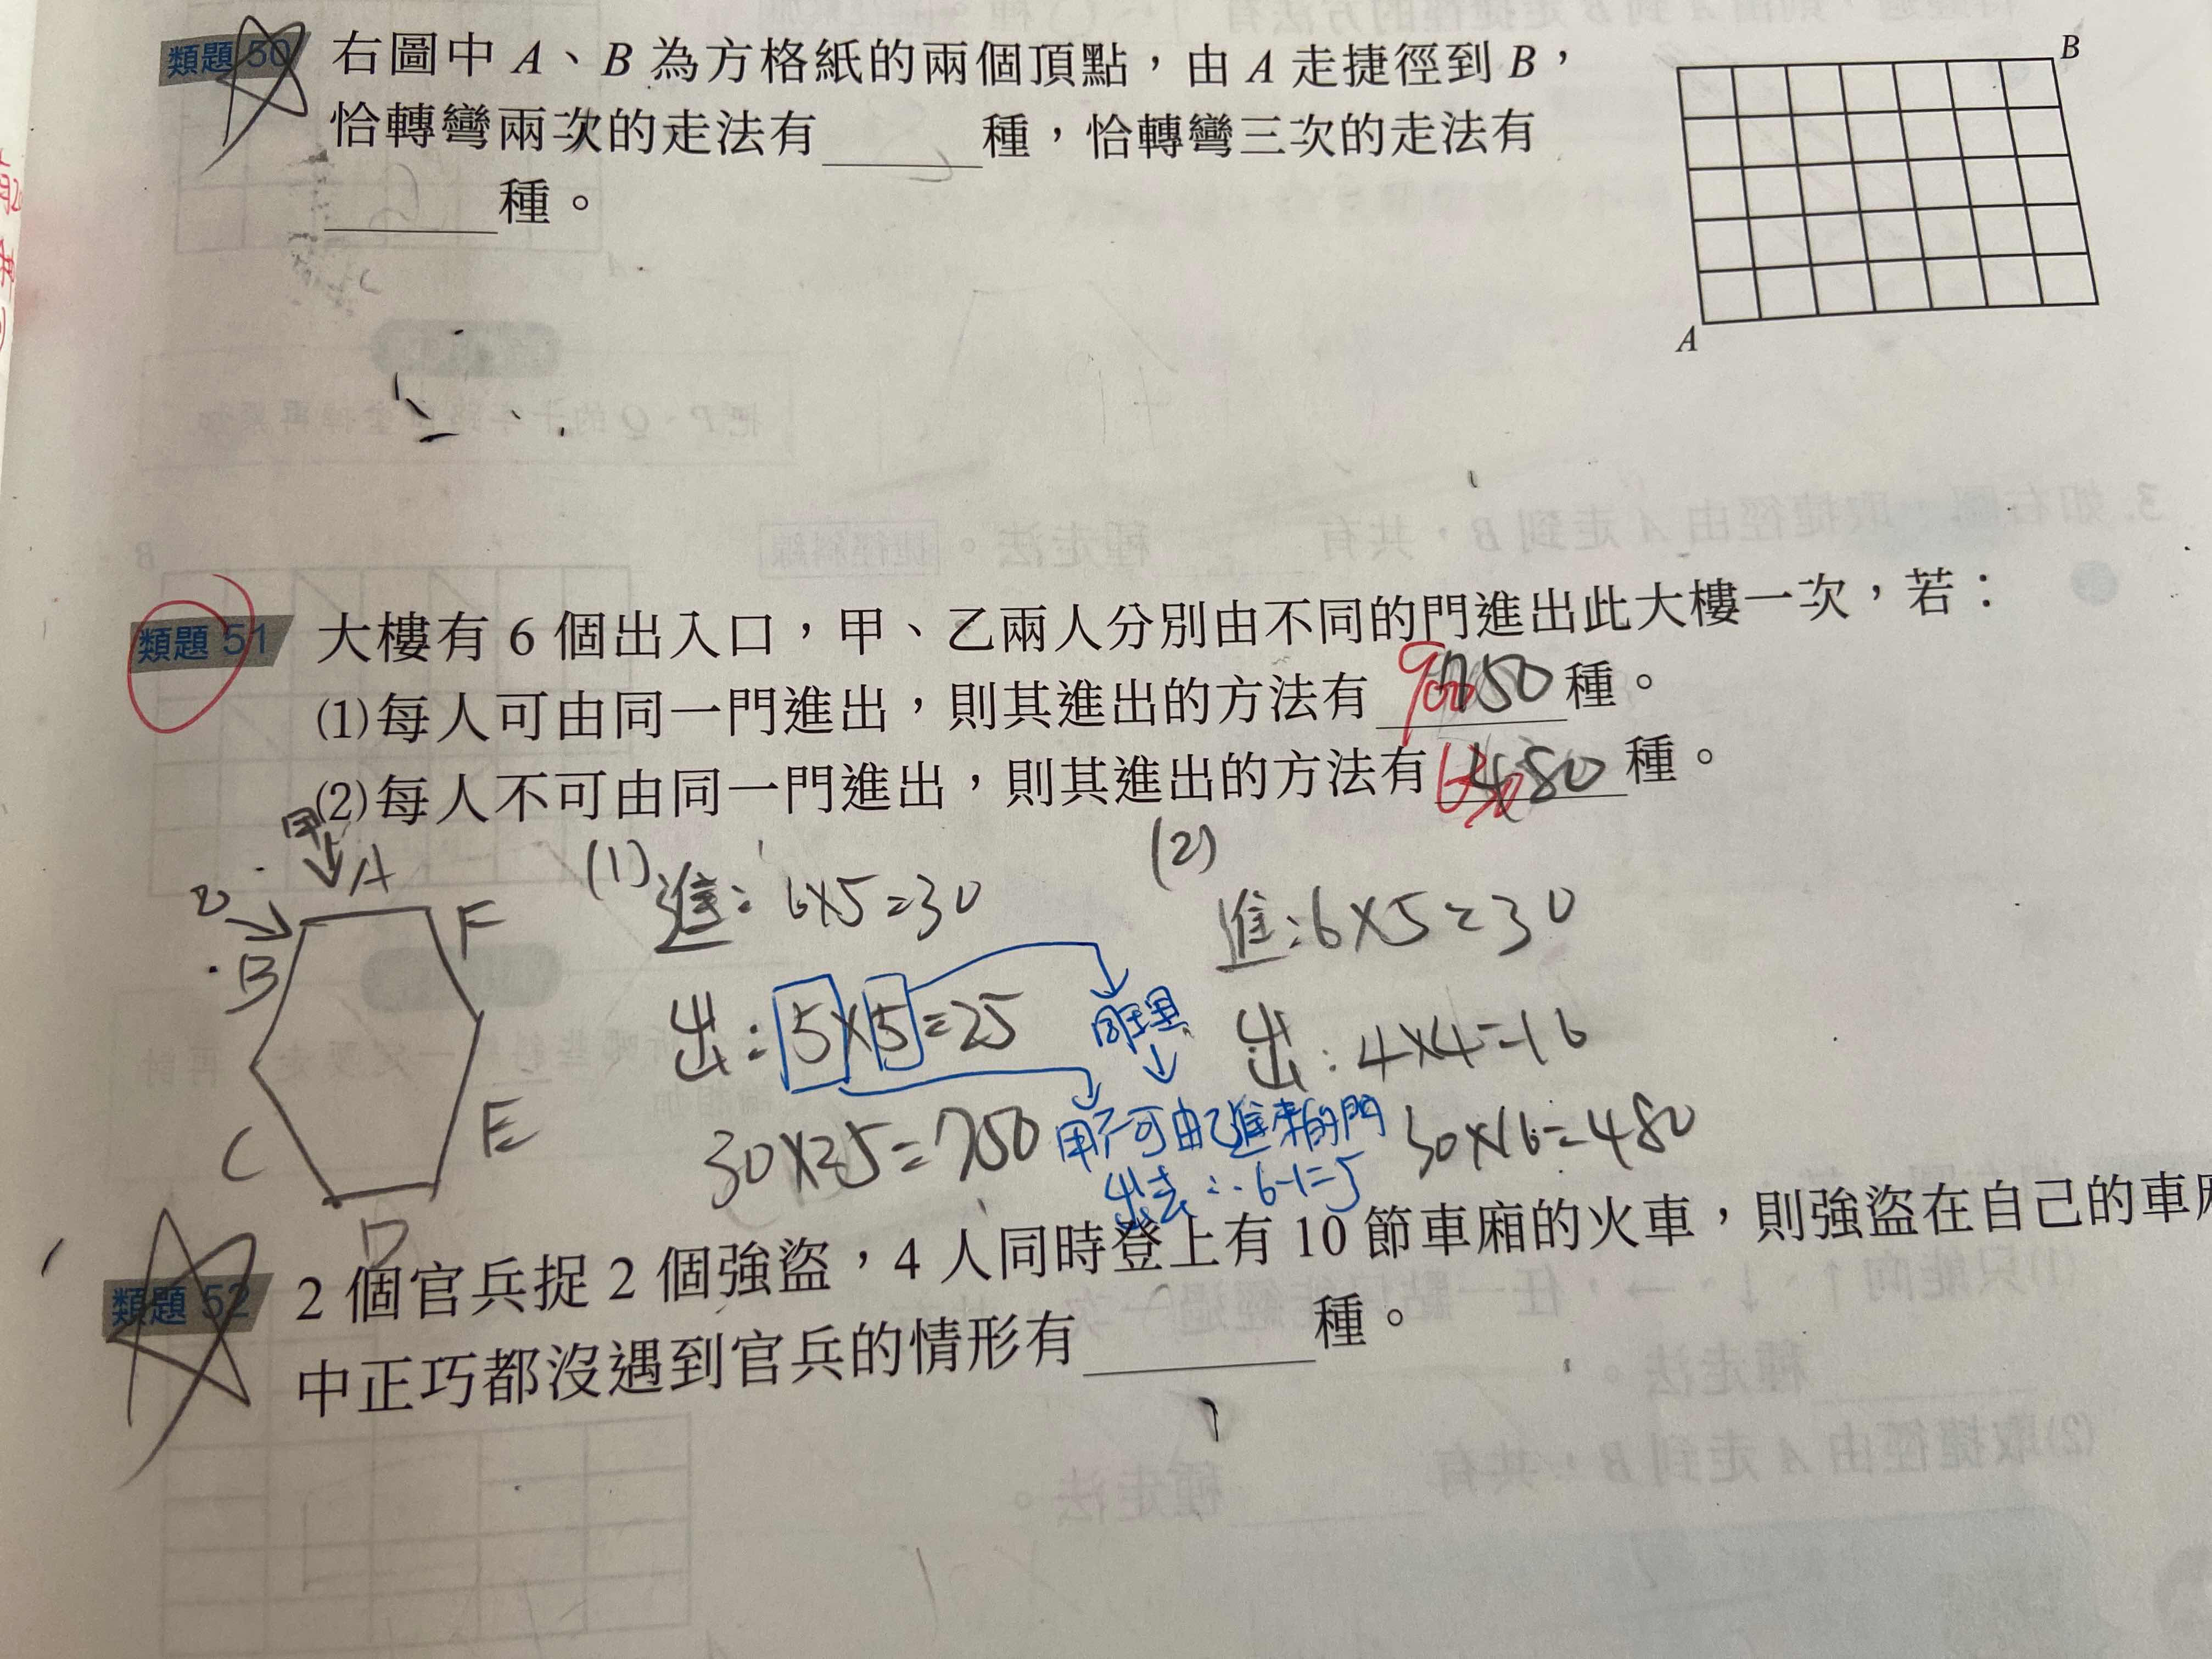 類題 50 右圖中 A、B 為方格紙的兩個頂點，由 A 走捷徑到 B，
恰轉彎兩次的走法有______種，恰轉彎三次的走法有
______種。
B
A
類題 51 大樓有 6 個出入口，甲、乙兩人分別由不同的門進出此大樓一次，若：
(1)每人可由同一門進出，則其進出的方法有 900 750 種。
(2)每人不可由同一門進出，則其進出的方法有 480 種。
甲
A
乙
B
F
C
E
D
(1)
進：6×5=30
出：5×5=25
30×25=750
同理
甲不可由乙進來的門
出去 ∴6-1=5
(2)
進：6×5=30
出：4×4=16
30×16=480
類題 52 2 個官兵捉 2 個強盜，4 人同時登上有 10 節車廂的火車，則強盜在自己的車
中正巧都沒遇到官兵的情形有______種。